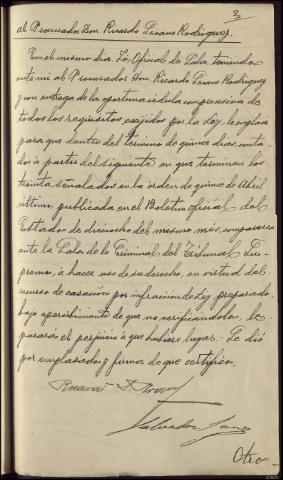 al Procurador Don Ricardo Lozano Rodriguez.
En el mismo dia. Yo, Oficial de Sala teniendo
ante mi al Procurador Don Ricardo Lozano Rodriguez
y con entrega de la oportuna cédula comprensiva de
todos los requisitos exijidos por la Ley, le emplacé
para que dentro del termino de quince dias, conta-
dos á partir del siguiente en que terminen los
treinta señalados en la órden de quince de Abril
ultimo, publicada en el Boletin oficial del
Estado de dieciocho del mismo mes, comparezca
ante la Sala de lo Criminal del Tribunal Su-
premo, á hacer uso de su derecho, en virtud del
recurso de casación por infraccion de Ley preparado,
bajo apercibimiento de que no verificandolo, le
parará el perjuicio á que hubiere lugar. Se dió
por emplazado y firma de que certifico.
Salvador
Otra